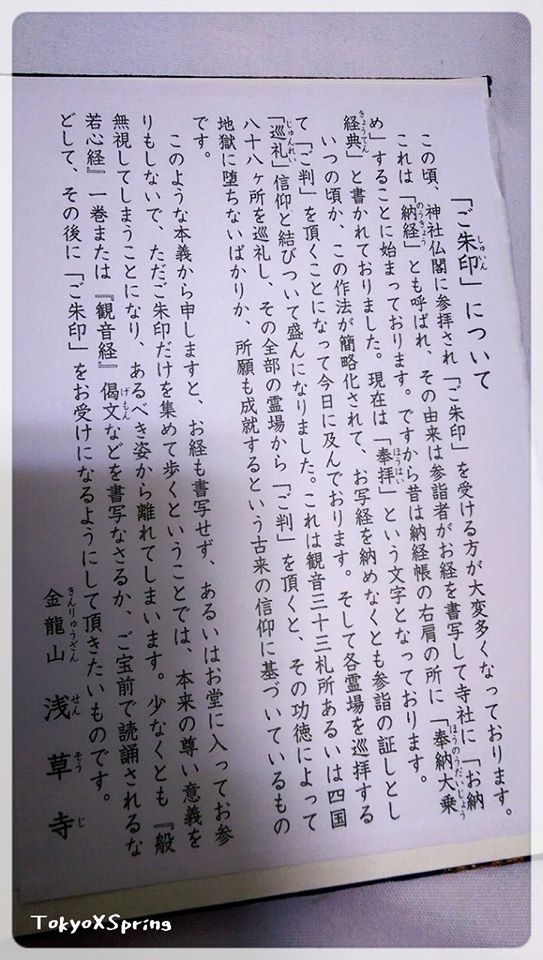 「ご朱印」について
この頃、神社仏閣に参拝され「ご朱印」を受ける方が大変多くなっております。
これは「納経」とも呼ばれ、その由来は参詣者がお経を書写して寺社に「お納
め」することに始まっております。ですから昔は納経帳の右肩の所に「奉納大乗
経典」と書かれておりました。現在は「奉拝」という文字となっております。
いつの頃か、この作法が簡略化されて、お写経を納めなくとも参詣の証しとし
て「ご判」を頂くことになって今日に及んでおります。そして各霊場を巡拝する
「巡礼」信仰と結びついて盛んになりました。これは観音三十三札所あるいは四国
八十八ヶ所を巡礼し、その全部の霊場から「ご判」を頂くと、その功徳によって
地獄に堕ちないばかりか、所願も成就するという古来の信仰に基づいているもの
です。
このような本義から申しますと、お経も書写せず、あるいはお堂に入ってお参
りもしないで、ただご朱印だけを集めて歩くということでは、本来の尊い意義を
無視してしまうことになり、あるべき姿から離れてしまいます。少なくとも『般
若心経』一巻または『観音経』偈文などを書写なさるか、ご宝前で読誦されるな
どして、その後に「ご朱印」をお受けになるようにして頂きたいものです。
金龍山 浅草寺
TokyoXSpring